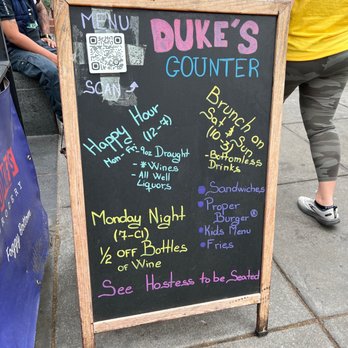 MENU
SCAN
DUKE'S
COUNTER
Happy Hour
(12-7)
Mon-Fri 9oz Draught
* Wines
- All Well
Liquors
Brunch on
Sat & Sun
(10-3)
- Bottomless
Drinks
Sandwiches
Proper
Burger®
Kids Menu
Fries
Monday Night
(7-Cl)
½ OFF Bottles
of Wine
See Hostess to be Seated